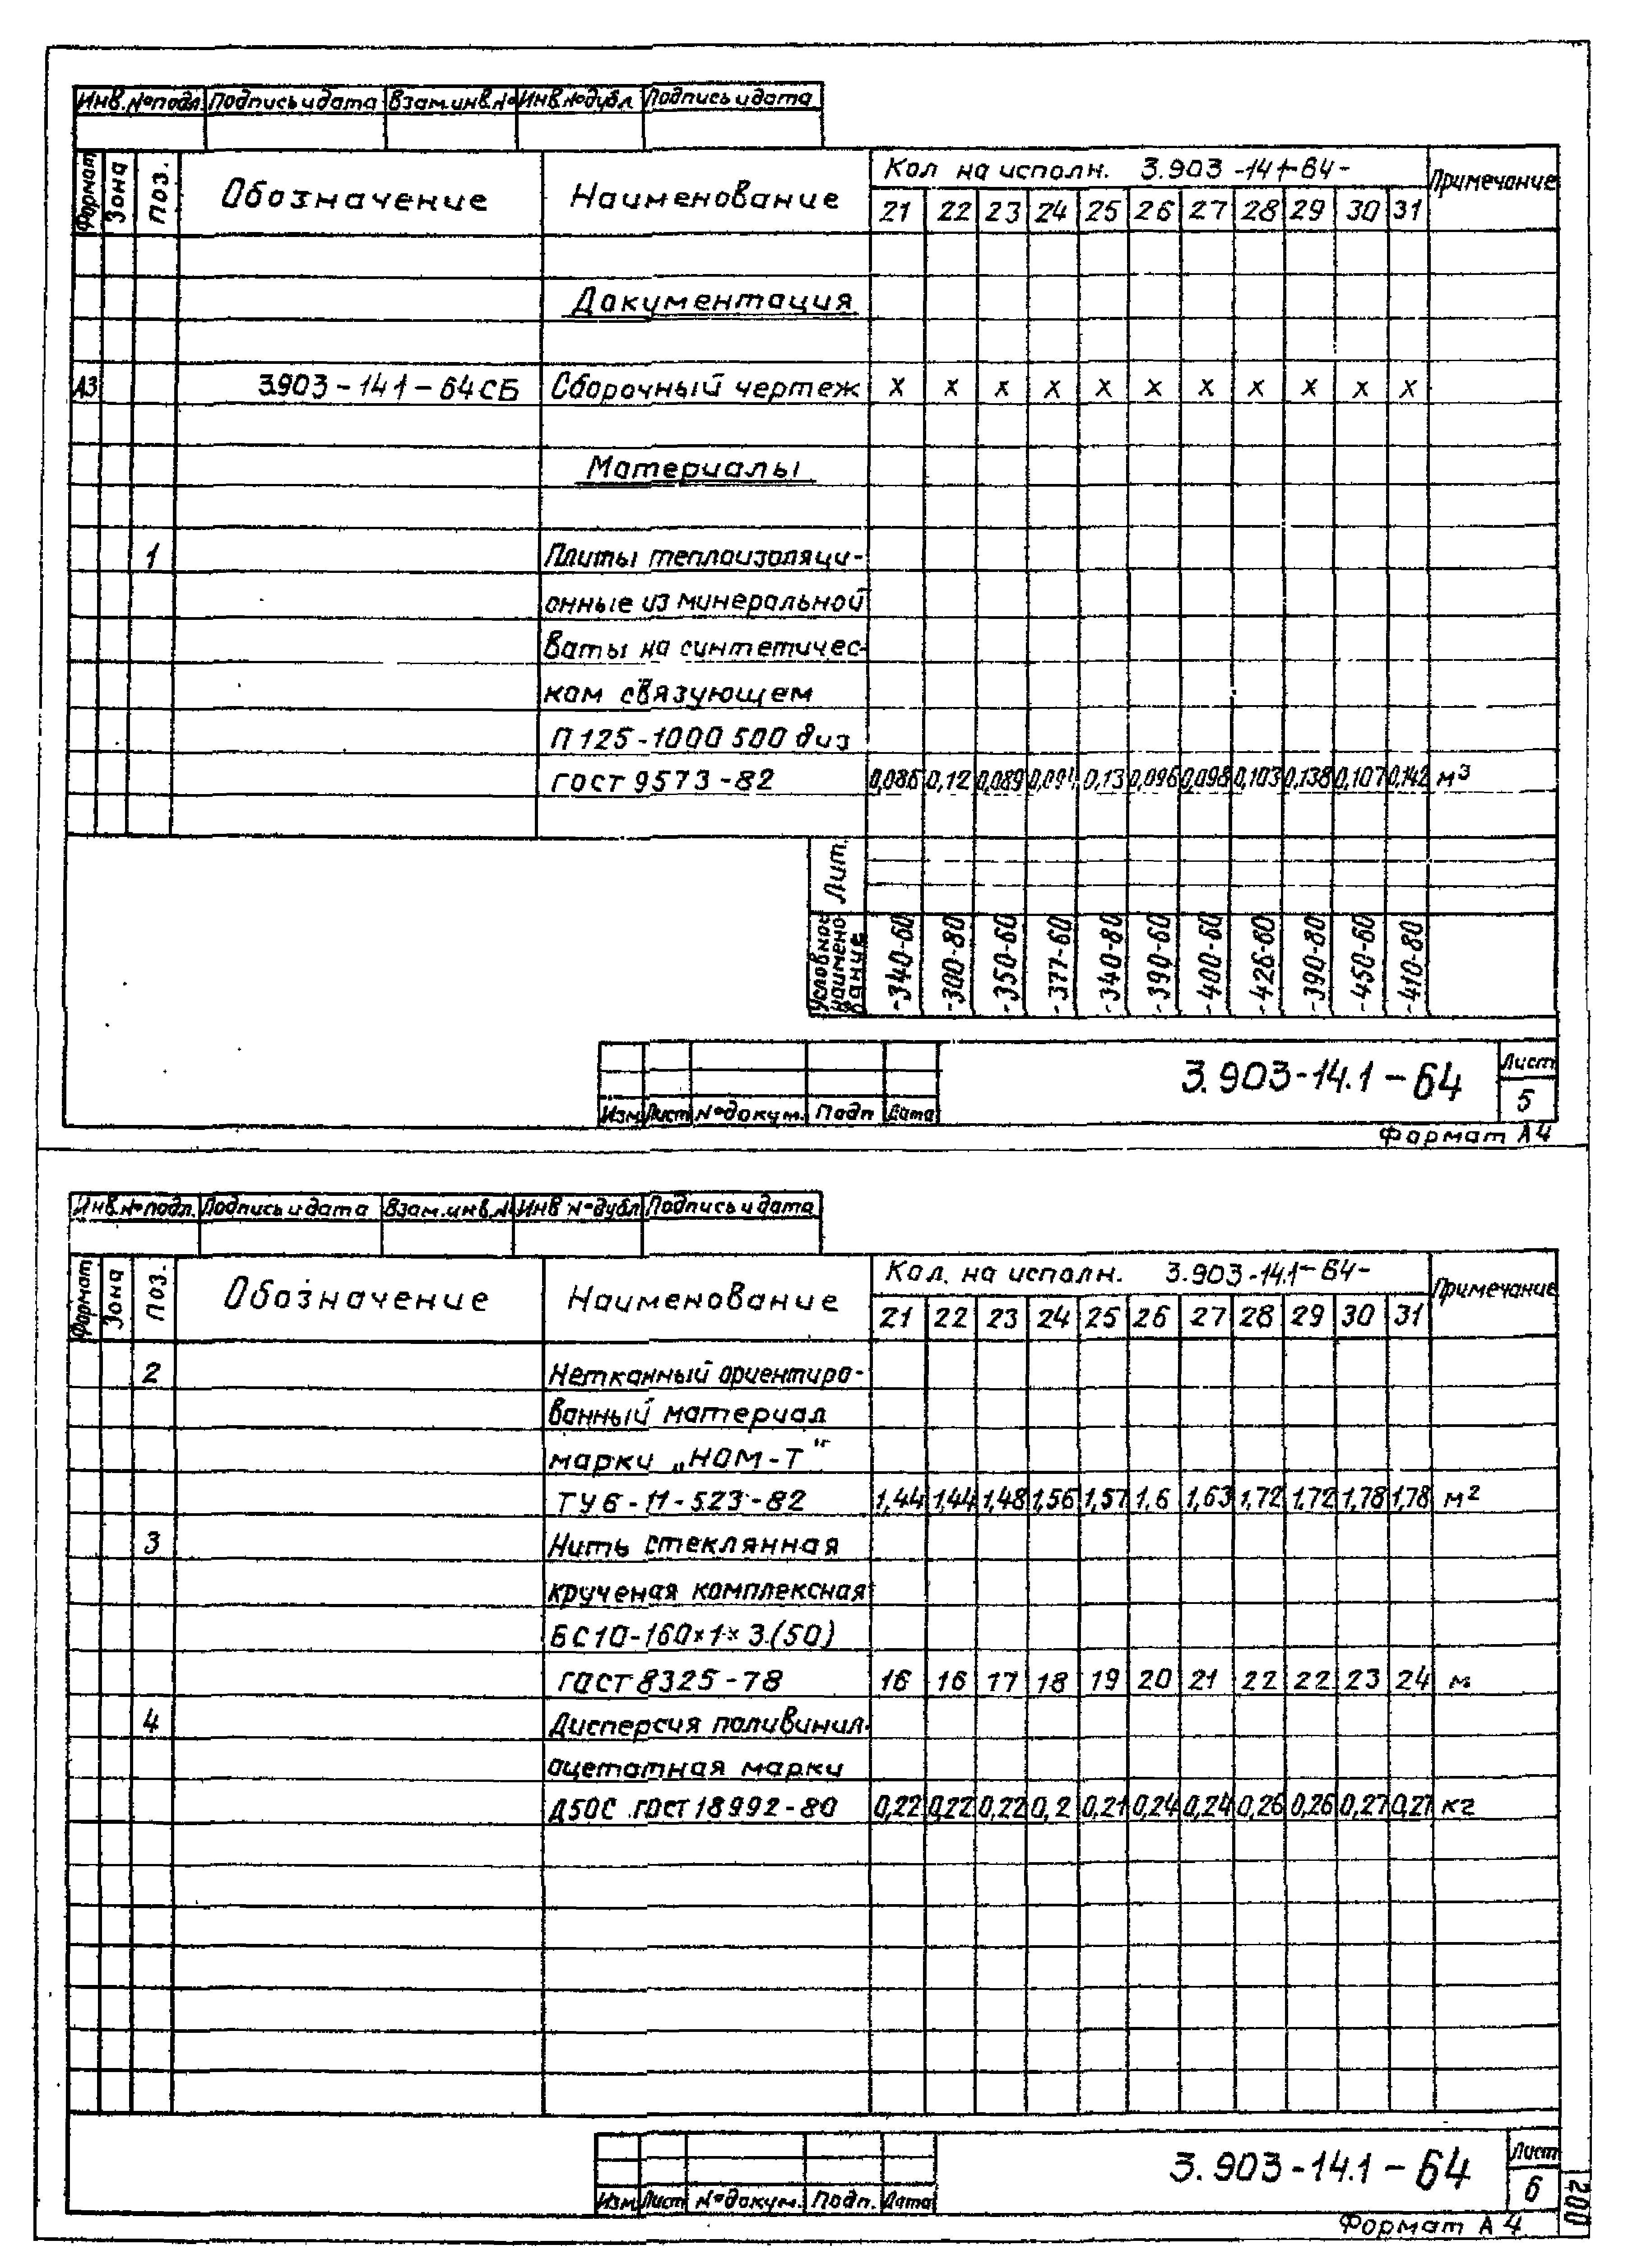 Инв.№подл. Подпись и дата Взам.инв.№ Инв.№дубл. Подпись и дата
Формат Зона Поз. Обозначение Наименование Кол на исполн. 3.903-141-64- Примечание
21 22 23 24 25 26 27 28 29 30 31
Документация
А3 3.903-141-64СБ Сборочный чертеж х х х х х х х х х х х
Материалы
1 Плиты теплоизоляци-
онные из минеральной
ваты на синтетичес-
ком связующем
П125-1000 500 диз
ГОСТ 9573-82 0,086 0,12 0,089 0,13 0,096 0,098 0,103 0,138 0,107 0,142 м³
Лит.
Условное наимено вание -340-60 -300-80 -350-60 -377-60 -340-80 -390-60 -400-60 -426-60 -390-80 -450-60 -410-80
3.903-14.1-64 Лист
5
Изм Лист №докум. Подп Дата
Формат А4
Инв.№подл. Подпись и дата Взам.инв.№ Инв №дубл Подпись и дата
Формат Зона Поз. Обозначение Наименование Кол. на исполн. 3.903-14.1-64- Примечание
21 22 23 24 25 26 27 28 29 30 31
2 Нетканный ориентиро-
ванный материал
марки „НОМ-Т"
ТУ6-11-523-82 1,44 1,44 1,48 1,56 1,57 1,6 1,63 1,72 1,72 1,78 1,78 м²
3 Нить стеклянная
крученая комплексная
БС10-160х1х3(50)
ГОСТ 8325-78 16 16 17 18 19 20 21 22 22 23 24 м
4 Дисперсия поливинил-
ацетатная марки
Д50С ГОСТ 18992-80 0,22 0,22 0,22 0,2 0,21 0,24 0,24 0,26 0,26 0,27 0,27 кг
3.903-14.1-64 Лист
6
Изм Лист №докум. Подп. Дата
Формат А4
200